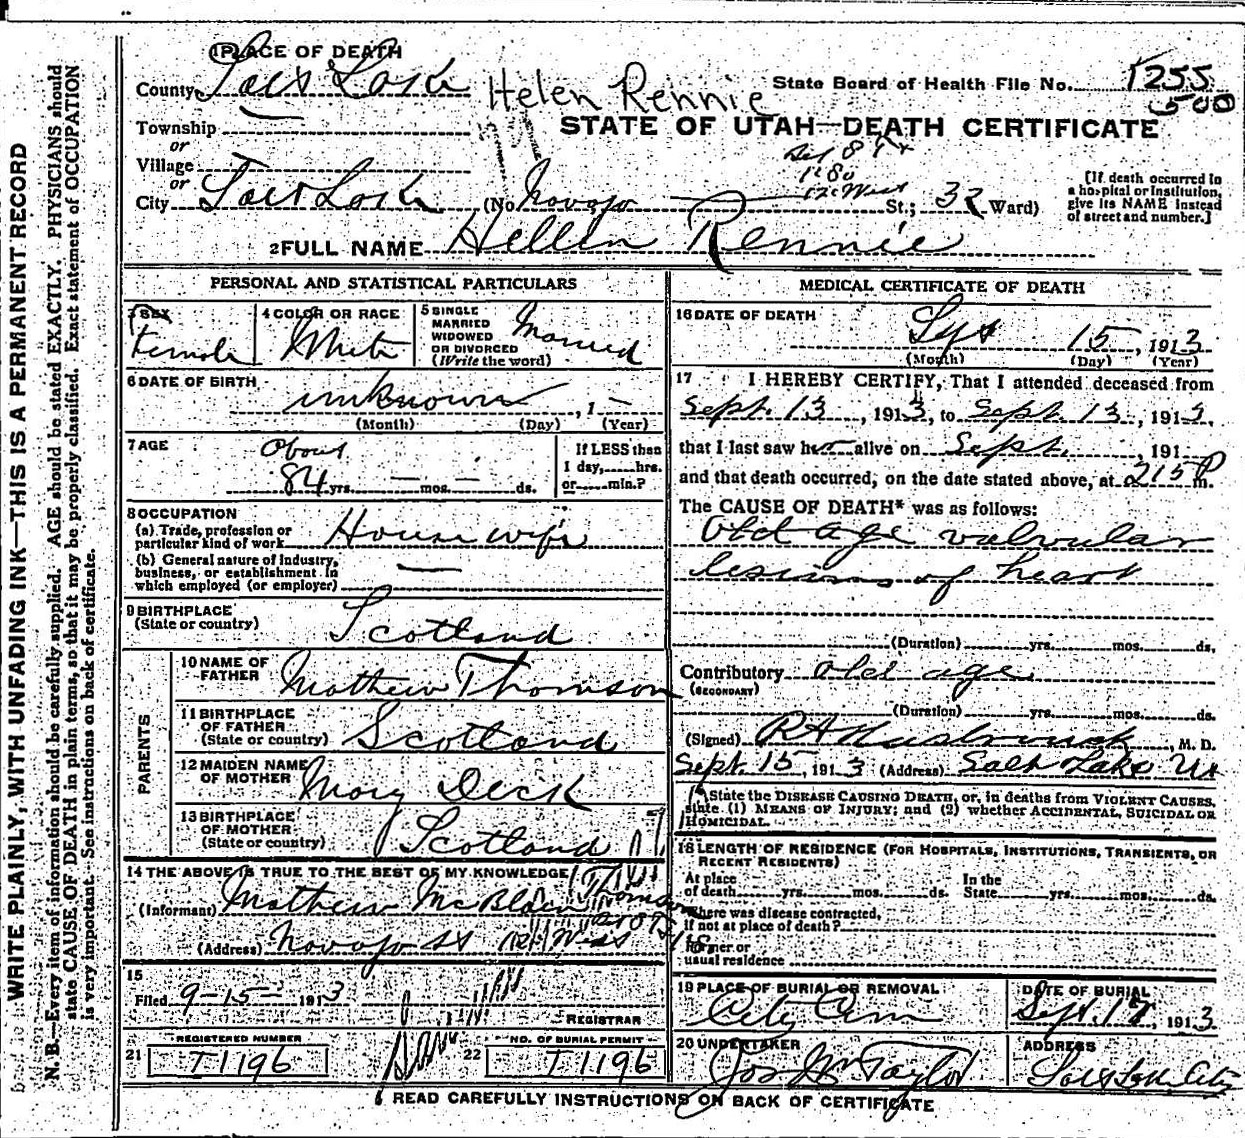 1 PLACE OF DEATH
County Salt Lake
Helen Rennie
State Board of Health File No. 1255
500
Township
or
Village
or
City Salt Lake
STATE OF UTAH—DEATH CERTIFICATE
(No. Navajo St.; 32 Ward)
12 West
[If death occurred in
a hospital or institution,
give its NAME instead
of street and number.]
2 FULL NAME Hellen Rennie
PERSONAL AND STATISTICAL PARTICULARS
3 SEX
Female
4 COLOR OR RACE
White
5 SINGLE
MARRIED
WIDOWED
OR DIVORCED
(Write the word)
Married
6 DATE OF BIRTH
unknown , 1 —
(Month) (Day) (Year)
7 AGE
About
84 yrs. — mos. — ds.
If LESS than
1 day, hrs.
or min.?
8 OCCUPATION
(a) Trade, profession or
particular kind of work House wife
(b) General nature of industry,
business, or establishment in
which employed (or employer) —
9 BIRTHPLACE
(State or country) Scotland
PARENTS
10 NAME OF
FATHER Mathew Thomson
11 BIRTHPLACE
OF FATHER
(State or country) Scotland
12 MAIDEN NAME
OF MOTHER Mary Deck
13 BIRTHPLACE
OF MOTHER
(State or country) Scotland
14 THE ABOVE IS TRUE TO THE BEST OF MY KNOWLEDGE
(Informant) Mathew McBlain Thomson
(Address) Navajo St 12th West
15
Filed 9-15- 1913
REGISTRAR
REGISTERED NUMBER
21 I1196
NO. OF BURIAL PERMIT
22 I1196
MEDICAL CERTIFICATE OF DEATH
16 DATE OF DEATH
Sept 15, 1913
(Month) (Day) (Year)
17 I HEREBY CERTIFY, That I attended deceased from
Sept. 13, 1913, to Sept. 13, 1913,
that I last saw her alive on Sept. , 191
and that death occurred, on the date stated above, at 215 P m.
The CAUSE OF DEATH* was as follows:
Old age valvular
lesions of heart
(Duration) yrs. mos. ds.
Contributory old age
(SECONDARY)
(Duration) yrs. mos. ds.
(Signed) R A Hasbrouck, M. D.
Sept. 15, 1913 (Address) Salt Lake Ut
*State the DISEASE CAUSING DEATH, or, in deaths from VIOLENT CAUSES,
state (1) MEANS OF INJURY; and (2) whether ACCIDENTAL, SUICIDAL OR
HOMICIDAL.
18 LENGTH OF RESIDENCE (FOR HOSPITALS, INSTITUTIONS, TRANSIENTS, OR
RECENT RESIDENTS)
At place
of death yrs. mos. ds.
In the
State yrs. mos. ds.
Where was disease contracted,
if not at place of death?
Former or
usual residence
19 PLACE OF BURIAL OR REMOVAL
City Cem
DATE OF BURIAL
Sept. 17, 1913
20 UNDERTAKER
Jos Wm Taylor
ADDRESS
Salt Lake City
READ CAREFULLY INSTRUCTIONS ON BACK OF CERTIFICATE
WRITE PLAINLY, WITH UNFADING INK—THIS IS A PERMANENT RECORD
N. B.—Every item of information should be carefully supplied. AGE should be stated EXACTLY. PHYSICIANS should
state CAUSE OF DEATH in plain terms, so that it may be properly classified. Exact statement of OCCUPATION
is very important. See instructions on back of certificate.